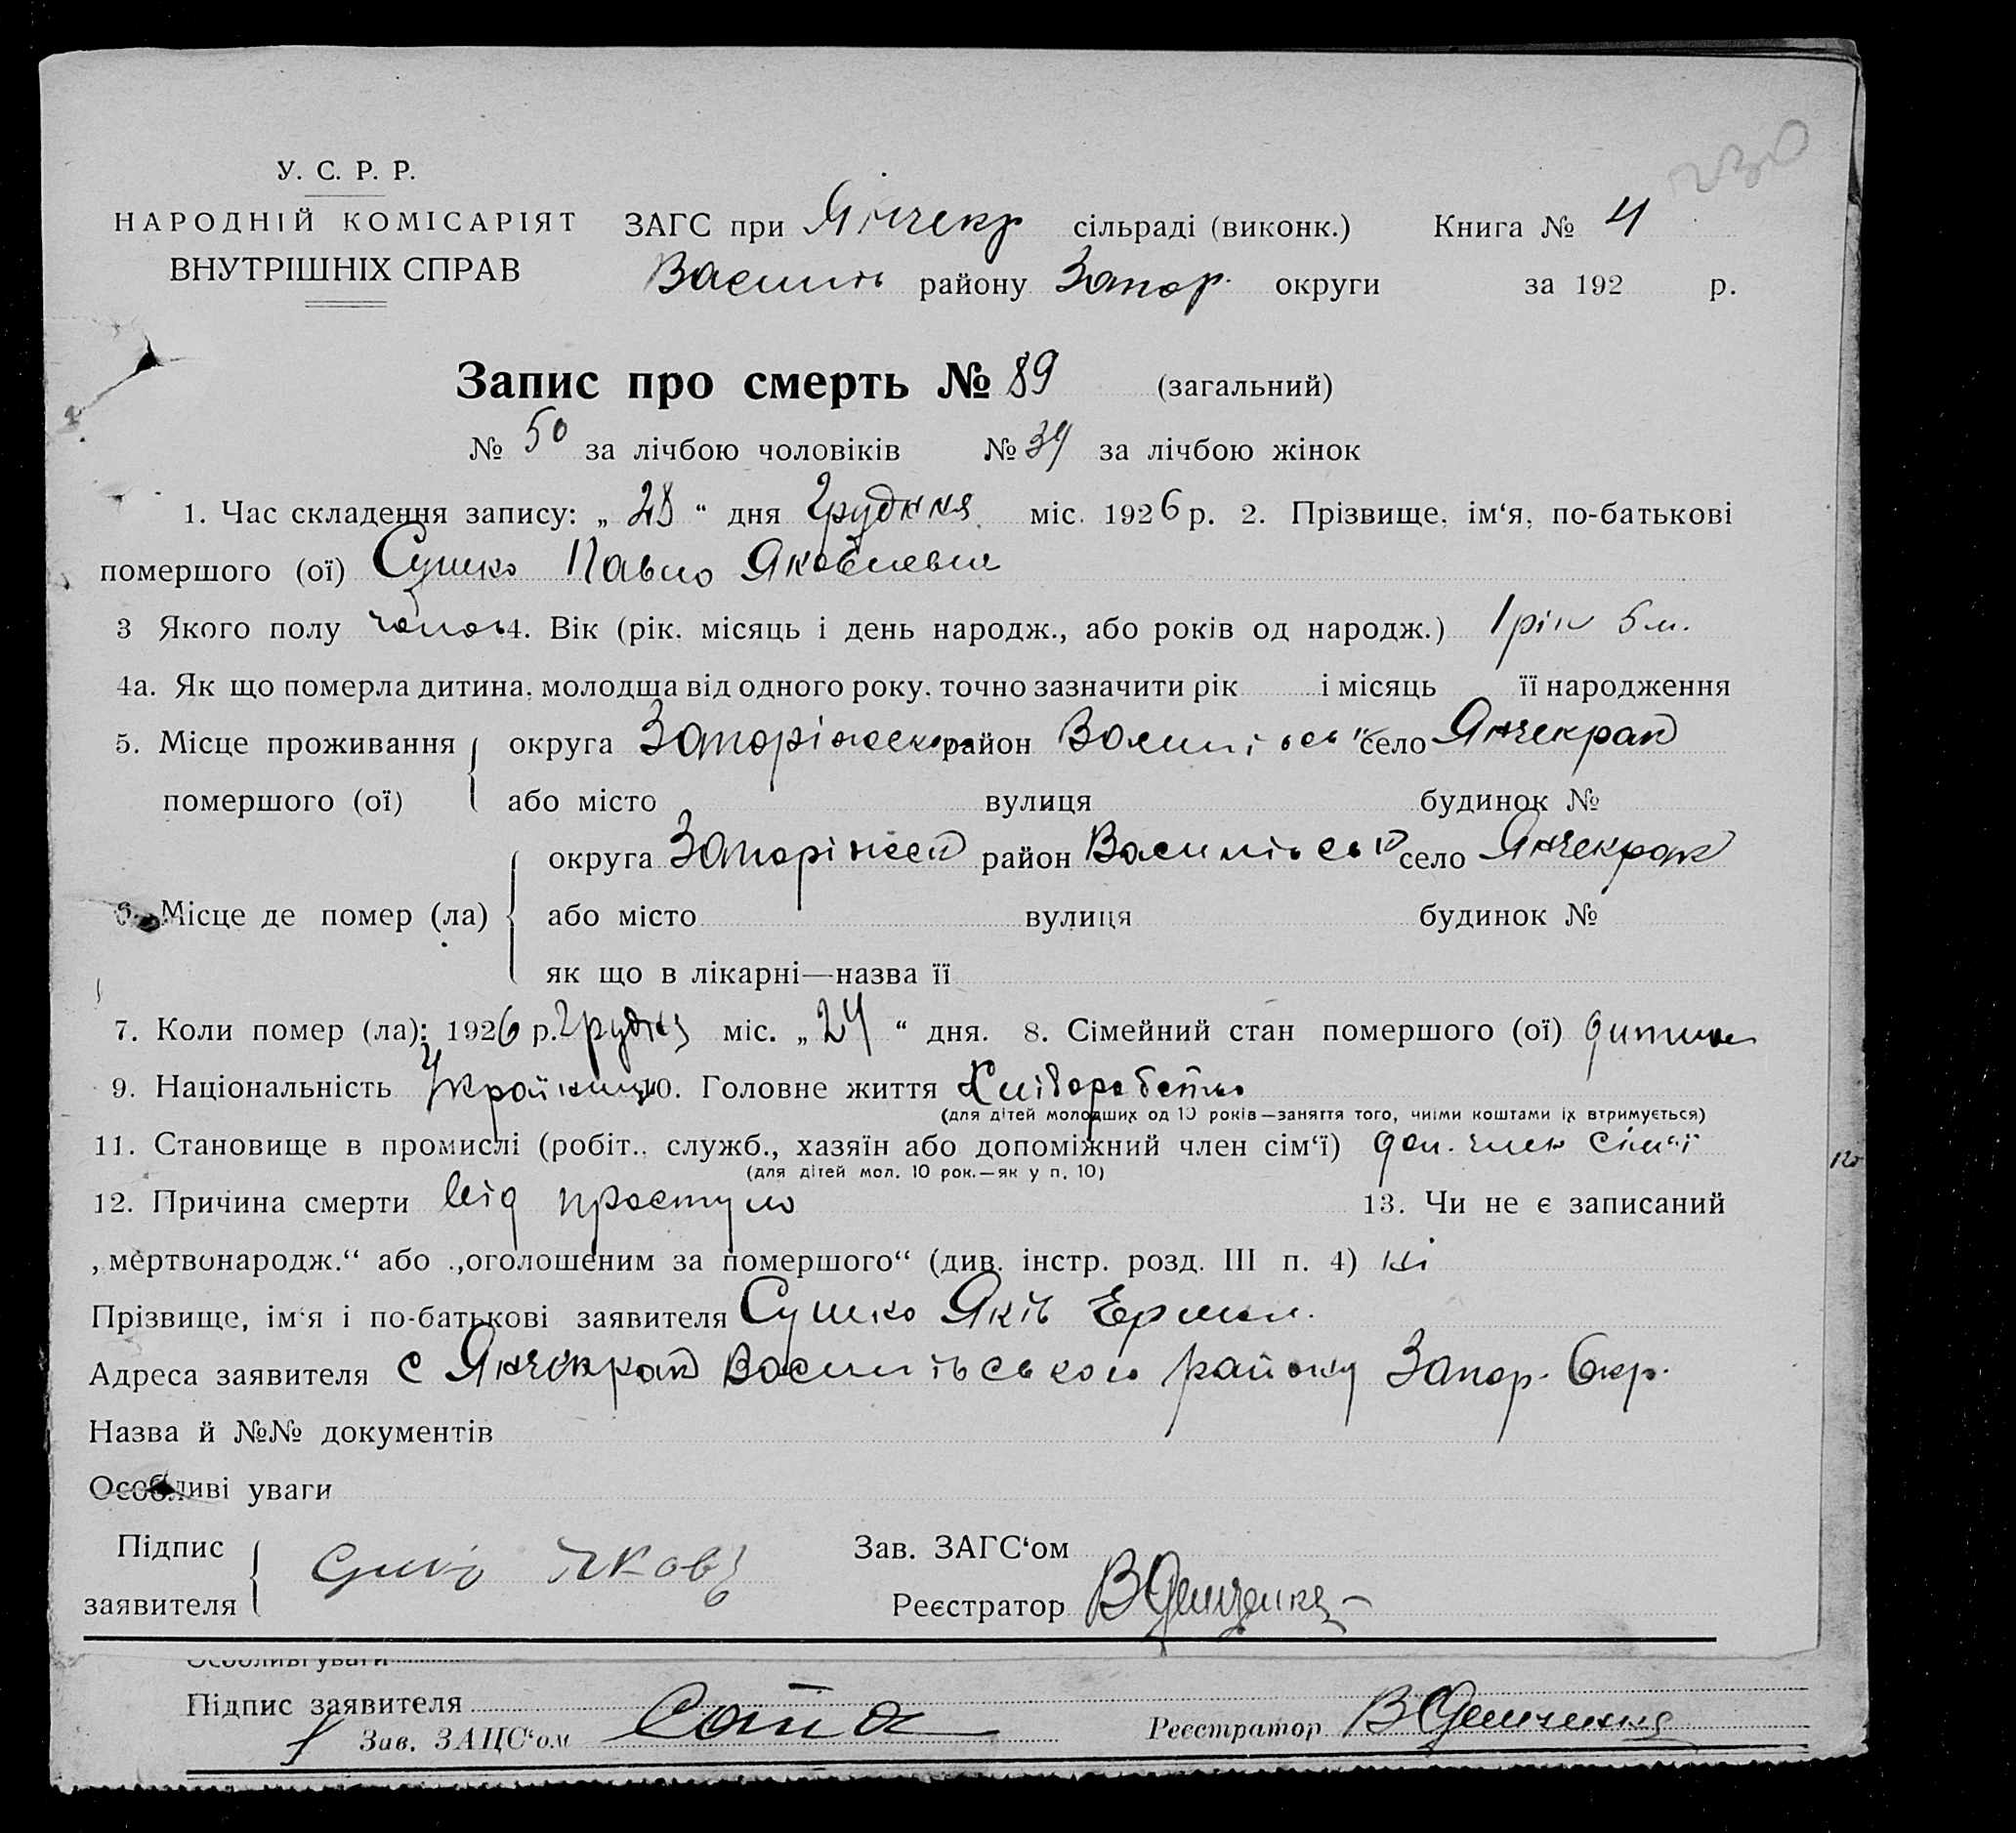 230
У. С. Р. Р.
НАРОДНІЙ КОМІСАРІЯТ ЗАГС при Янчекр сільраді (виконк.) Книга № 4
ВНУТРІШНІХ СПРАВ Василів району Запор. округи за 192 р.
Запис про смерть № 89 (загальний)
№ 50 за лічбою чоловіків № 39 за лічбою жінок
1. Час складення запису: „ 28 “ дня Грудння міс. 1926 р. 2. Прізвище, ім‘я, по-батькові
помершого (ої) Сушко Павло Яковлевич
3 Якого полу чолов 4. Вік (рік. місяць і день народж., або років од народж.) 1 рік 5 м.
4а. Як що померла дитина, молодша від одного року, точно зазначити рік і місяць її народження
5. Місце проживання округа Запоріжськ район Василівськ село Янчекрак
помершого (ої) або місто вулиця будинок №
округа Запоріжськ район Василівськ село Янчекрак
6. Місце де помер (ла) або місто вулиця будинок №
як що в лікарні—назва її
7. Коли помер (ла): 1926 р. Грудня міс. „ 24 “ дня. 8. Сімейний стан помершого (ої) дитина
9. Національність Українець 10. Головне життя Хліборобство
(для дітей молодших од 10 років—заняття того, чиїми коштами їх втримується)
11. Становище в промислі (робіт., служб., хазяїн або допоміжний член сім‘ї) доп. член сім‘ї
(для дітей мол. 10 рок.—як у п. 10)
12. Причина смерти від простуди 13. Чи не є записаний
„мертвонародж.“ або „оголошеним за помершого“ (див. інстр. розд. III п. 4) ні
Прізвище, ім‘я і по-батькові заявителя Сушко Яків Ермол.
Адреса заявителя с Янчекрак Василівського району Запор. Окр.
Назва й №№ документів
Особливі уваги
Підпис Зав. ЗАГС‘ом
заявителя Сушко Яков Реєстратор В Демченко
Особливі уваги
Підпис заявителя
Зав. ЗАЦС‘ом Реєстратор В Демченко